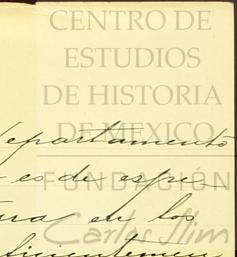 CENTRO DE
ESTUDIOS
DE HISTORIA
DE MEXICO
departamento
es de espe
FUNDACIÓN
en los
Carlos Slim